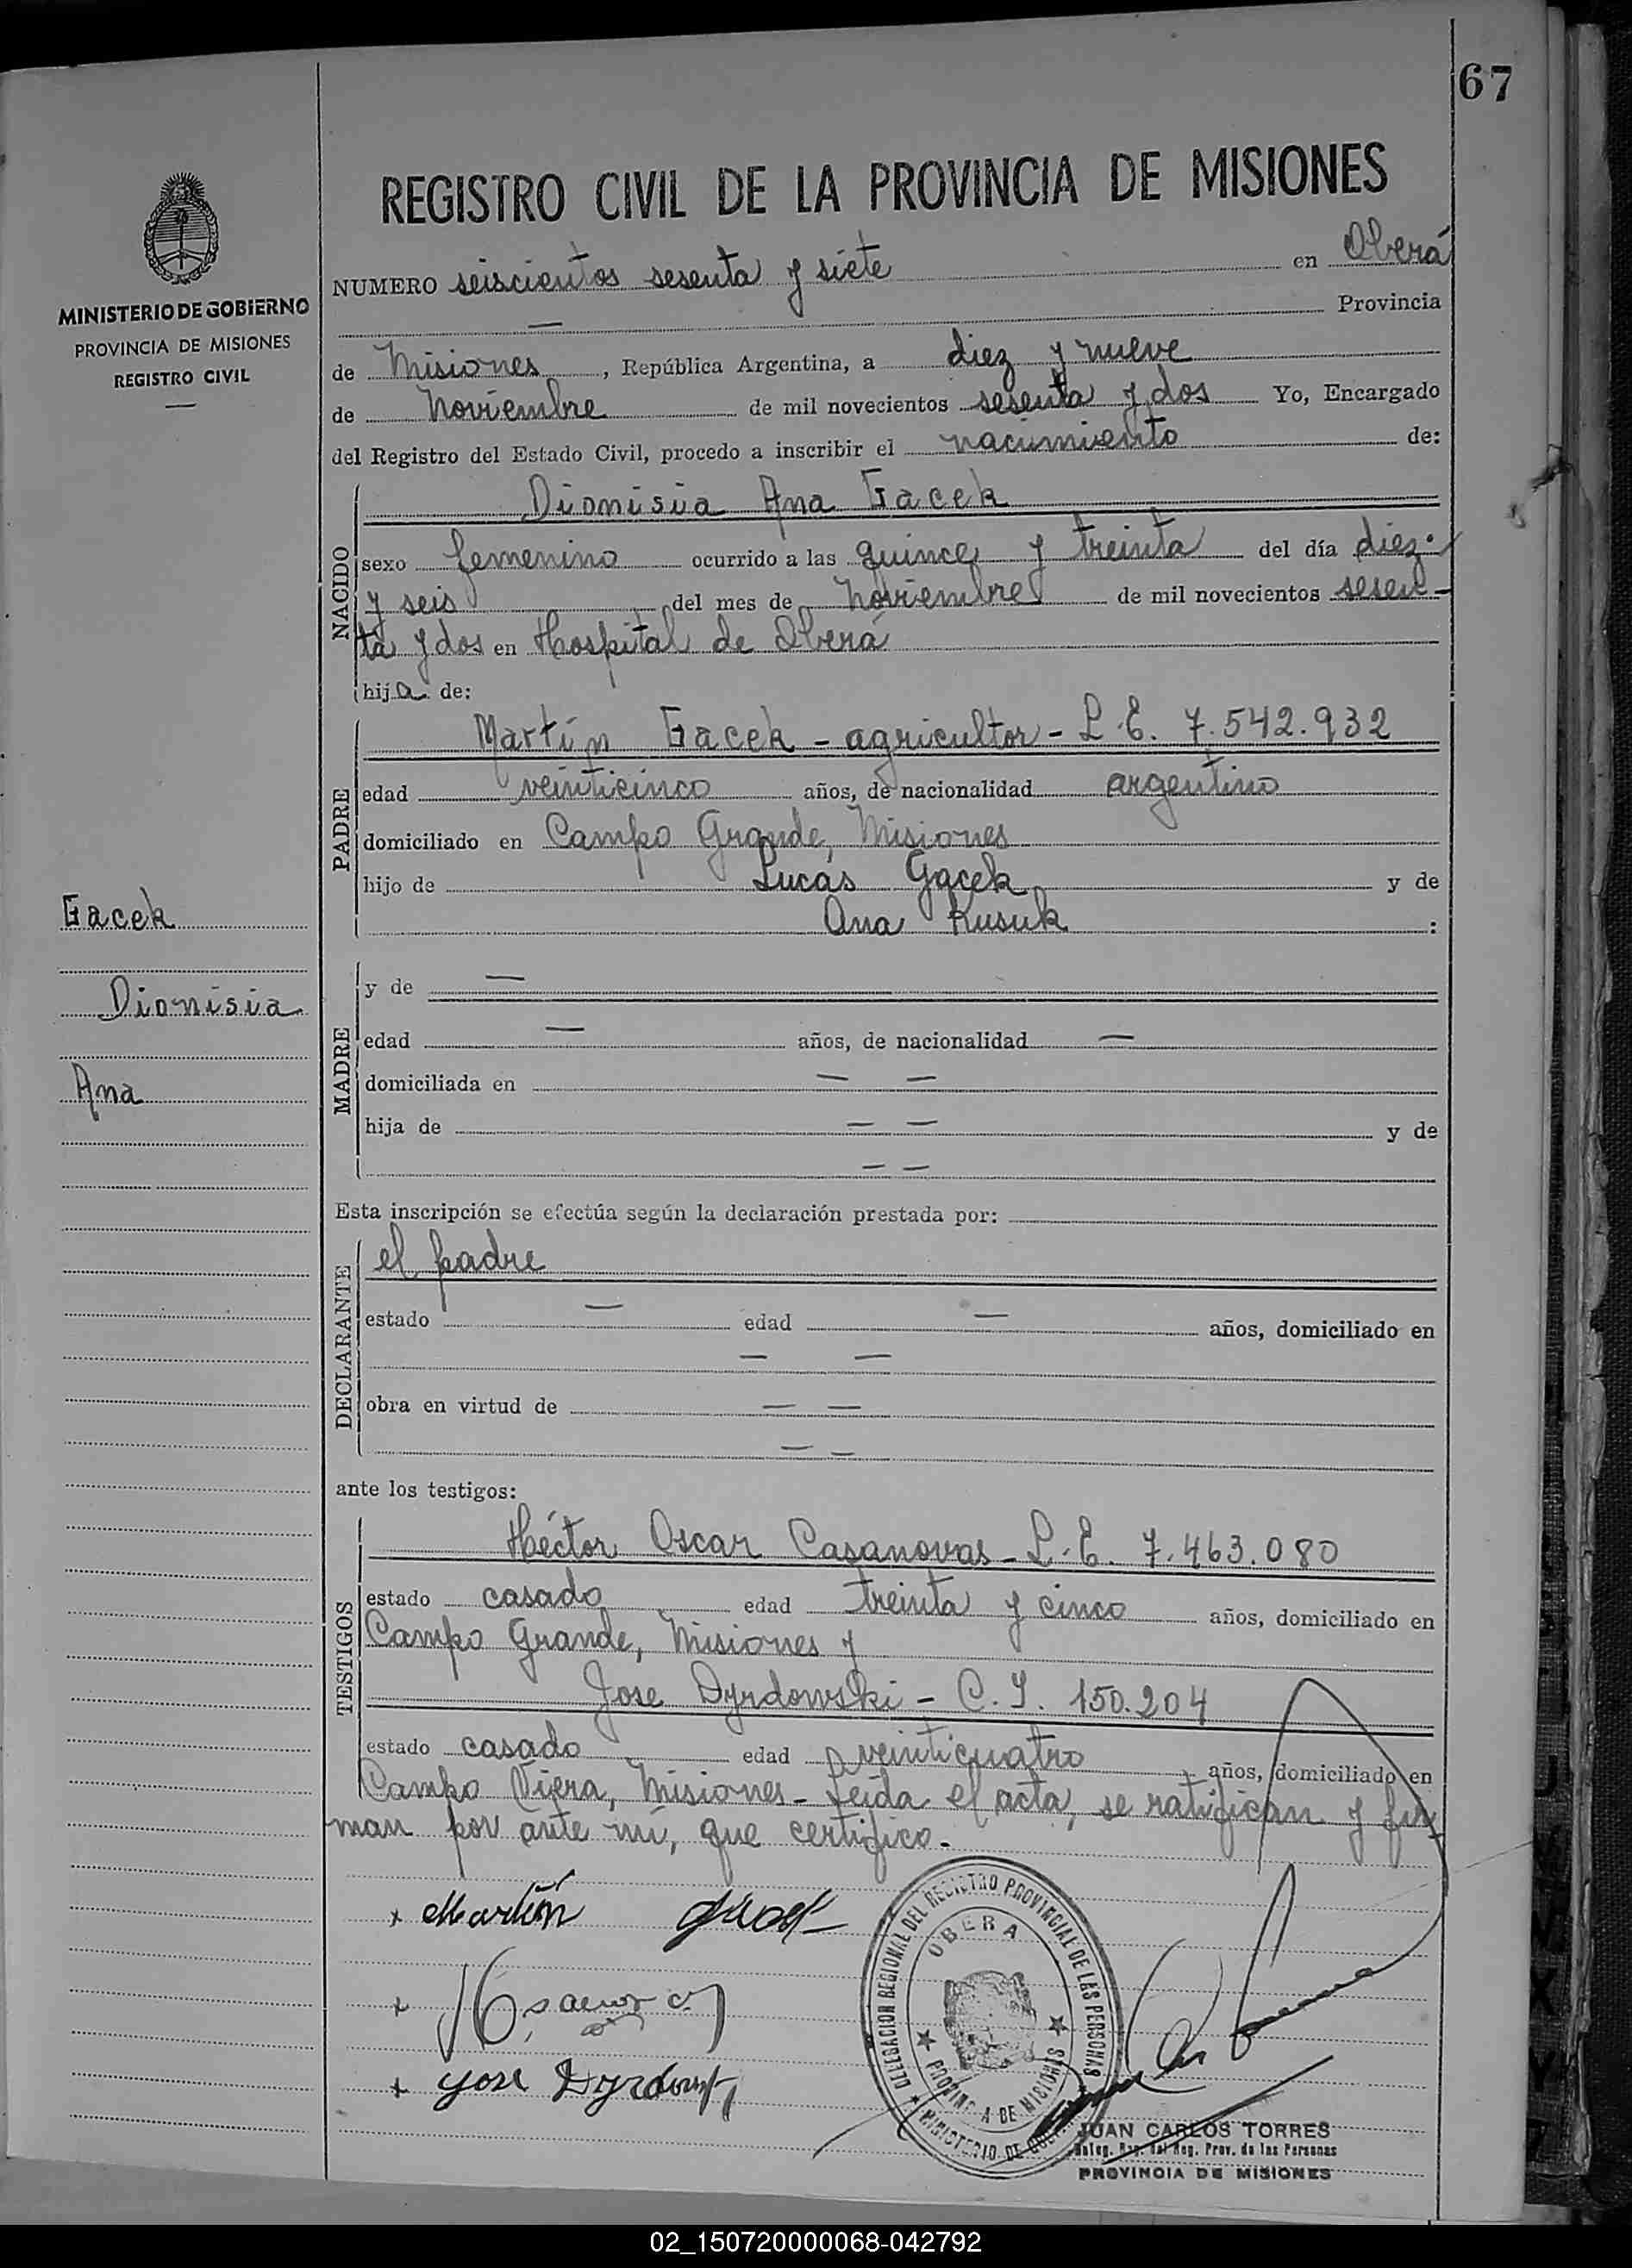 67
REGISTRO CIVIL DE LA PROVINCIA DE MISIONES
MINISTERIO DE GOBIERNO
PROVINCIA DE MISIONES
REGISTRO CIVIL
NUMERO seiscientos sesenta y siete en Oberá
— Provincia
de Misiones, República Argentina, a diez y nueve
de Noviembre de mil novecientos sesenta y dos Yo, Encargado
del Registro del Estado Civil, procedo a inscribir el nacimiento de:
NACIDO
Dionisia Ana Gacek
sexo femenino ocurrido a las quince y treinta del día diez
y seis del mes de Noviembre de mil novecientos sesen-
ta y dos en Hospital de Oberá
hija de:
PADRE
Martín Gacek - agricultor - L.E. 7.542.932
edad veinticinco años, de nacionalidad argentino
domiciliado en Campo Grande, Misiones
hijo de Lucas Gacek y de
Ana Kusuk :
Gacek
Dionisia
Ana
MADRE
y de —
edad — años, de nacionalidad —
domiciliada en — —
hija de — — y de
— —
Esta inscripción se efectúa según la declaración prestada por:
DECLARANTE
el padre
estado — edad — años, domiciliado en
— —
obra en virtud de — —
— —
ante los testigos:
TESTIGOS
Héctor Oscar Casanovas - L.E. 7.463.080
estado casado edad treinta y cinco años, domiciliado en
Campo Grande, Misiones y
Jose Dyrdowski - C.I. 150.204
estado casado edad veinticuatro años, domiciliado en
Campo Viera, Misiones - Leída el acta, se ratifican y fir
man por ante mí, que certifico.-
x Martín Gacek
x
x Jose Dyrdowski
DELEGACION REGIONAL DEL REGISTRO PROVINCIAL DE LAS PERSONAS
OBERA
PROVINCIA DE MISIONES
MINISTERIO DE
JUAN CARLOS TORRES
Deleg. Reg. del Reg. Prov. de las Personas
PROVINCIA DE MISIONES
02_150720000068-042792